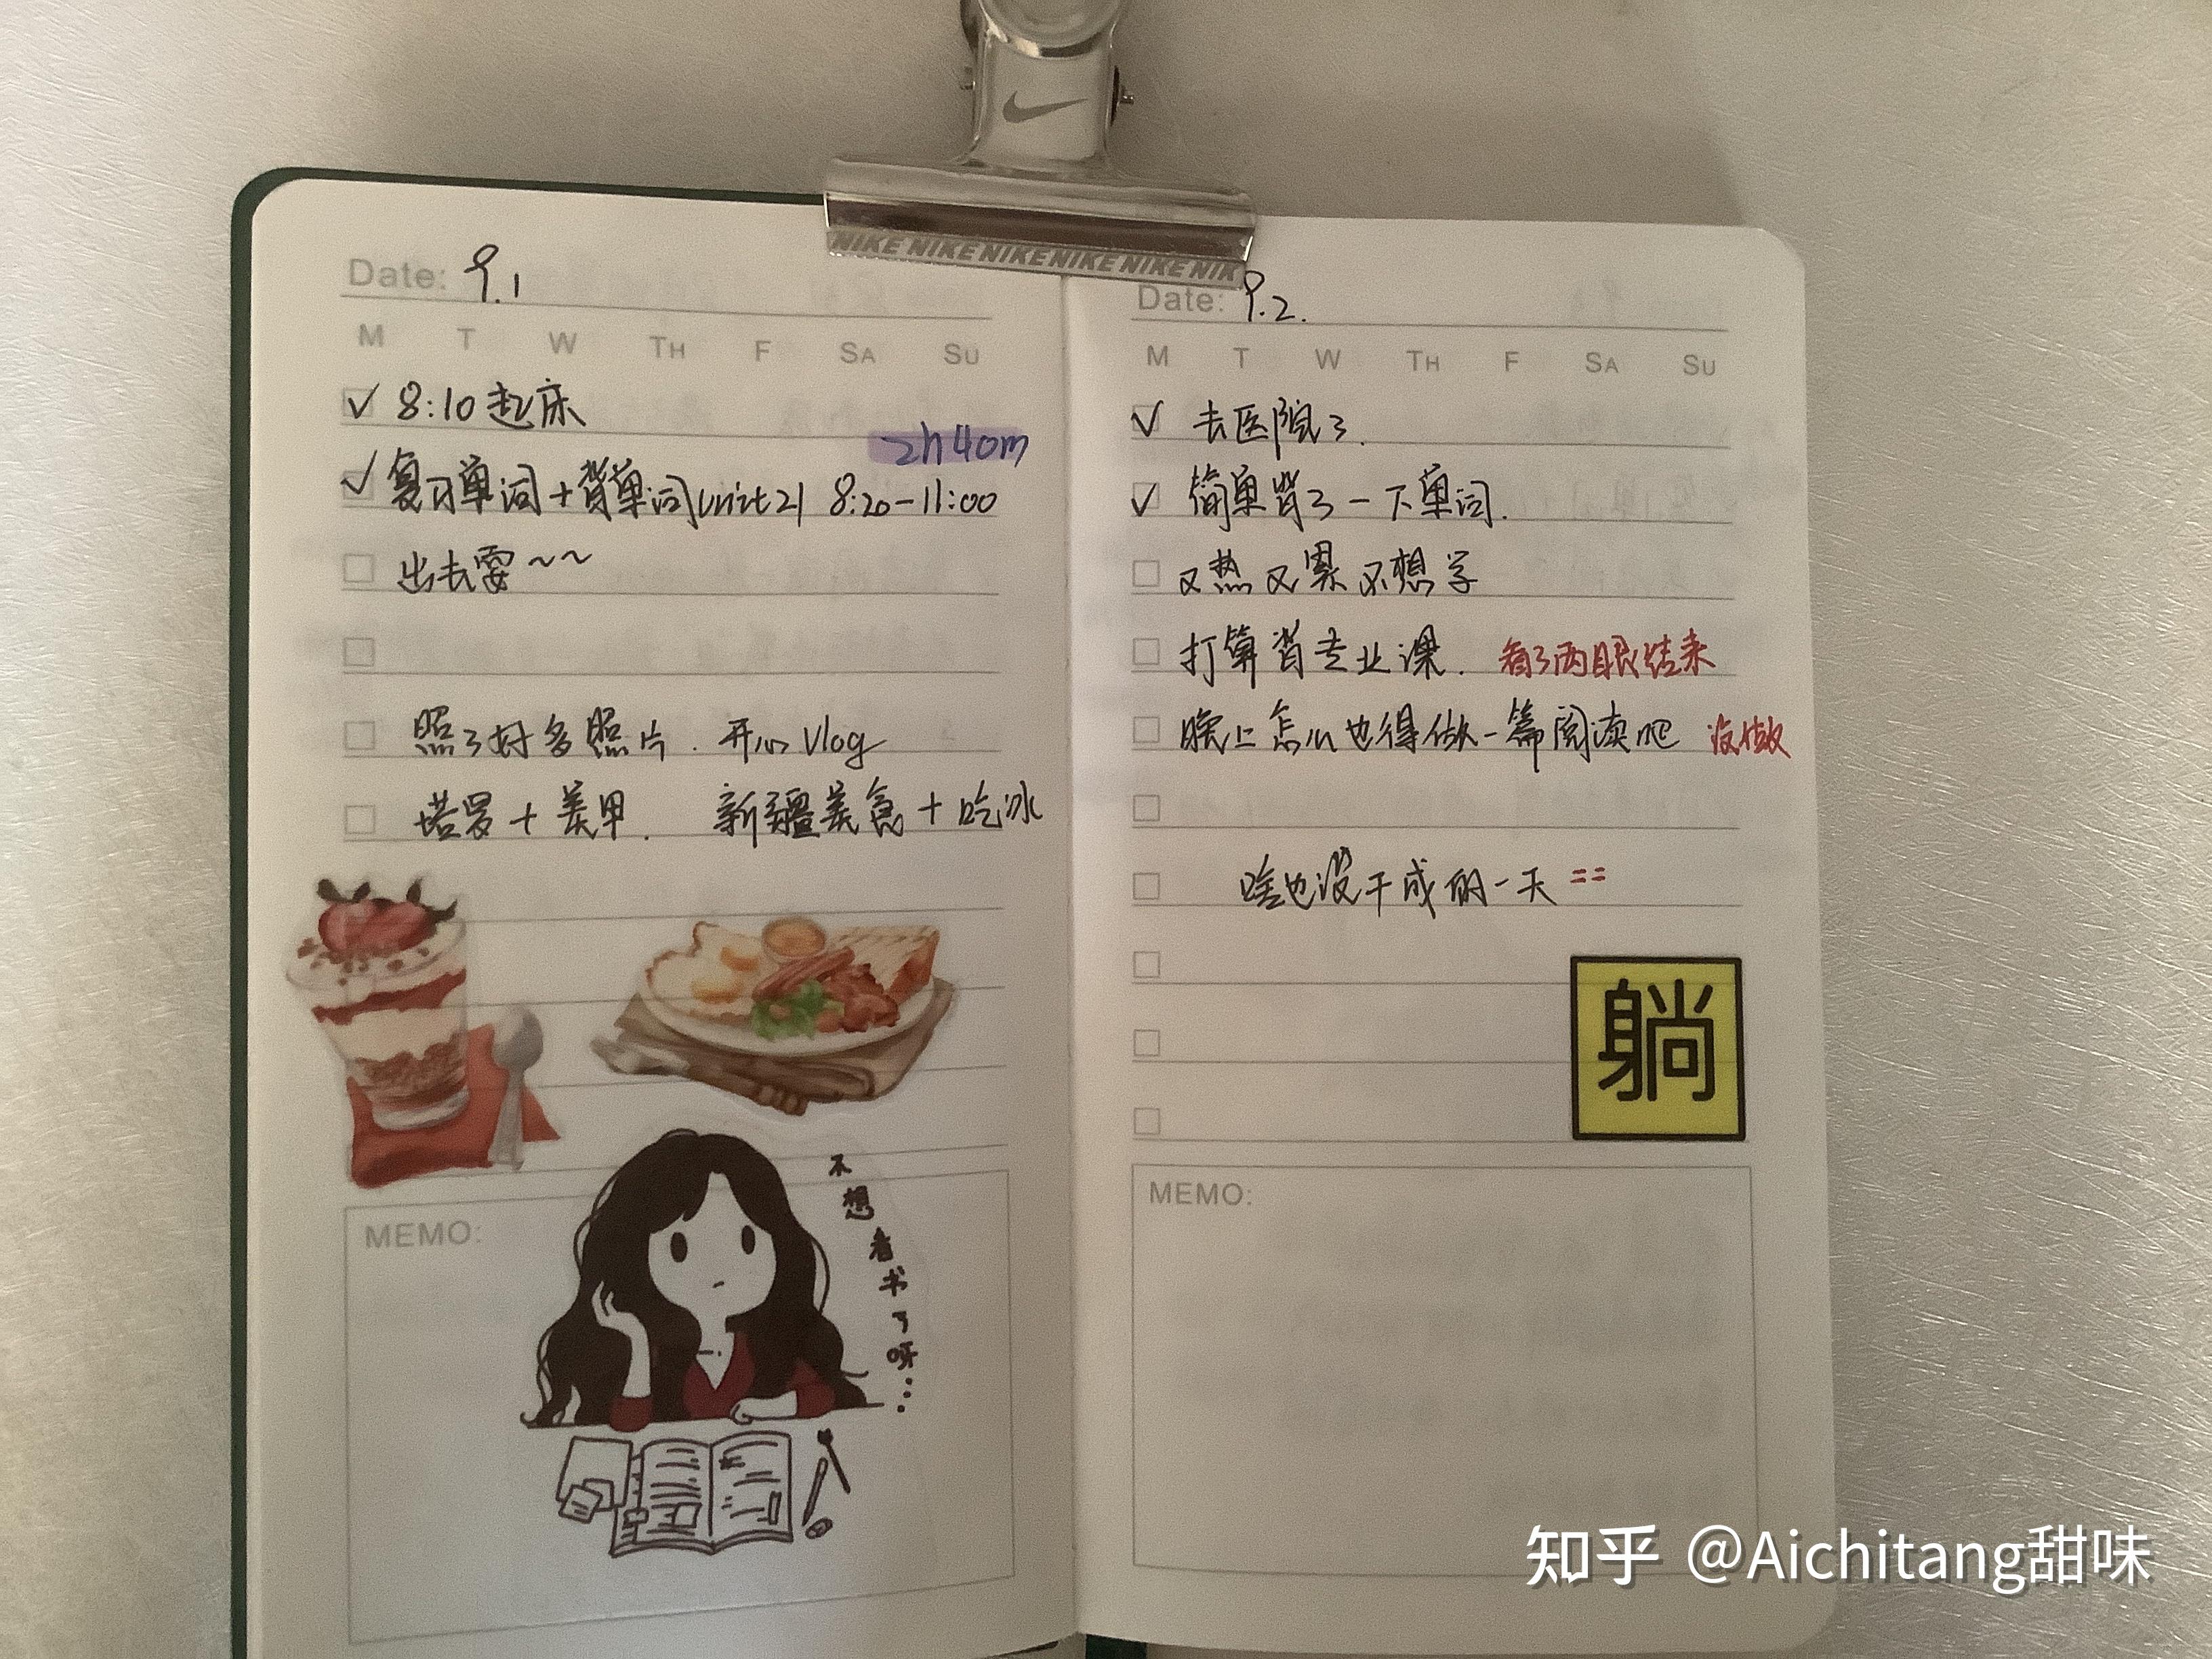 NIKE NIKE NIKE NIKE NIKE NIK
Date: 9.1
M T W TH F SA SU
8:10起床
2h40m
复习单词+背单词unit21 8:20-11:00
出去耍~~
照了好多照片.开心Vlog
塔罗+美甲. 新疆美食+吃冰
MEMO:
不想看书了呀...
Date: 9.2.
M T W TH F SA SU
去医院了.
简单背了一下单词.
又热又累不想学
打算背专业课. 看了两眼结束
晚上怎么也得做一篇阅读吧 没做
啥也没干成的一天==
躺
MEMO:
知乎 @Aichitang甜味